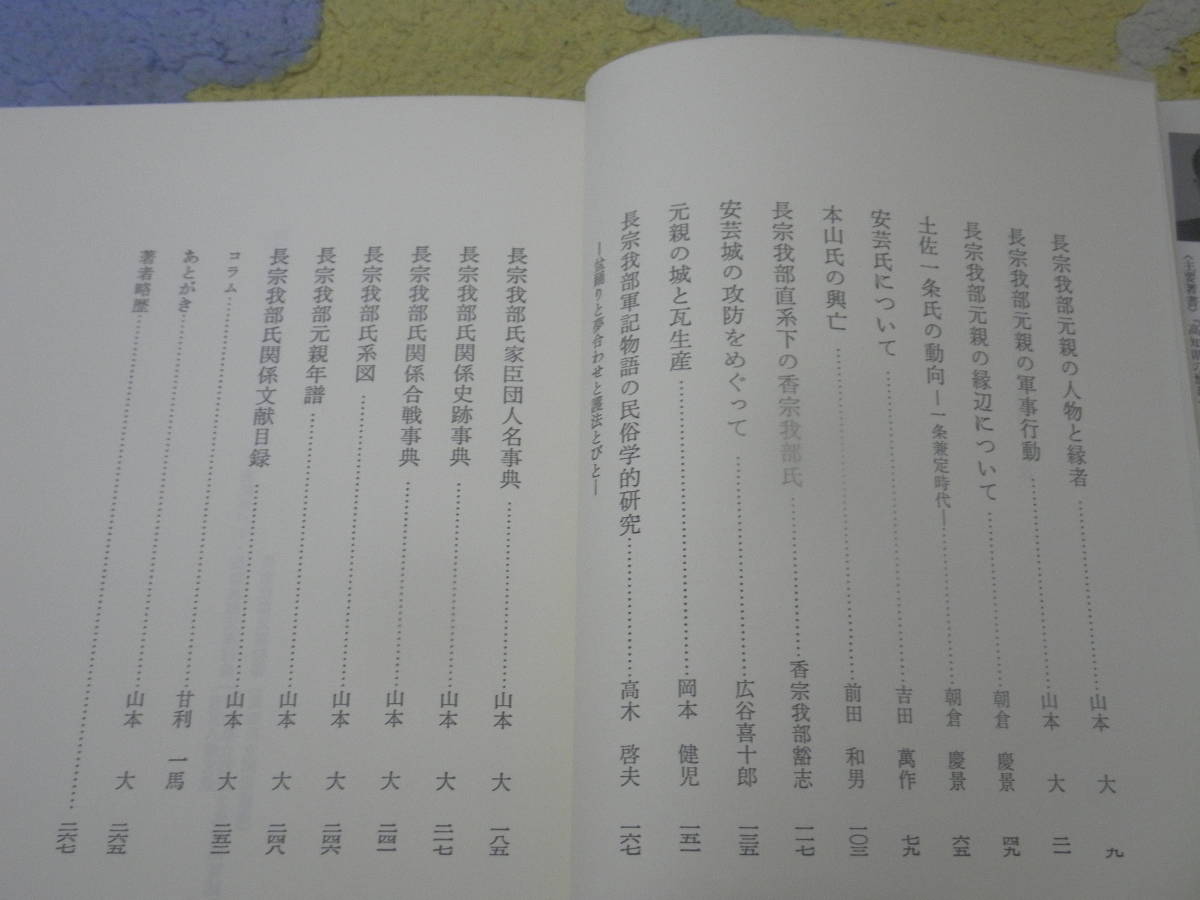 長宗我部元親の人物と縁者……山本 大 九
長宗我部元親の軍事行動……山本 大 二一
長宗我部元親の縁辺について……朝倉 慶景 四九
土佐一条氏の動向―一条兼定時代―……朝倉 慶景 六五
安芸氏について……吉田 萬作 七九
本山氏の興亡……前田 和男 一〇三
長宗我部直系下の香宗我部氏……香宗我部豁志 一一七
安芸城の攻防をめぐって……広谷喜十郎 一三五
元親の城と瓦生産……岡本 健児 一五一
長宗我部軍記物語の民俗学的研究……高木 啓夫 一六七
―盆踊りと夢合わせと護法とびと―
長宗我部氏家臣団人名事典……山本 大 一八五
長宗我部氏関係史跡事典……山本 大 二一七
長宗我部氏関係合戦事典……山本 大 二四一
長宗我部氏系図……山本 大 二四六
長宗我部元親年譜……山本 大 二四八
長宗我部氏関係文献目録……山本 大 二五二
コラム……甘利 一馬
あとがき……山本 大 二六五
著者略歴……二六七